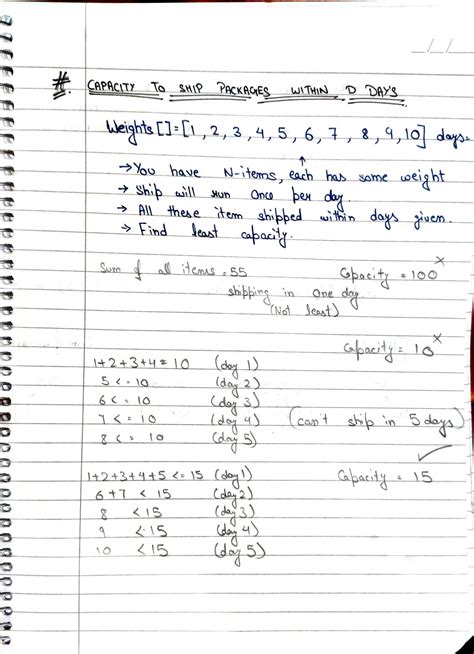 _/_/_
# CAPACITY TO SHIP PACKAGES WITHIN D DAYS
Weights[]=[1, 2, 3, 4, 5, 6, 7, 8, 9, 10] days=
→ You have N-items, each has some weight
→ Ship will run once per day.
→ All these item shipped within days given.
→ Find least capacity.
Sum of all items = 55 Capacity = 100 ×
shipping in one day
(Not least)
Capacity = 10 ×
1+2+3+4 = 10 (day 1)
5 <= 10 (day 2)
6 <= 10 (day 3)
7 <= 10 (day 4) (can't ship in 5 days)
8 <= 10 (day 5)
1+2+3+4+5 <= 15 (day 1) Capacity = 15 ✓
6+7 < 15 (day 2)
8 < 15 (day 3)
9 < 15 (day 4)
10 < 15 (day 5)